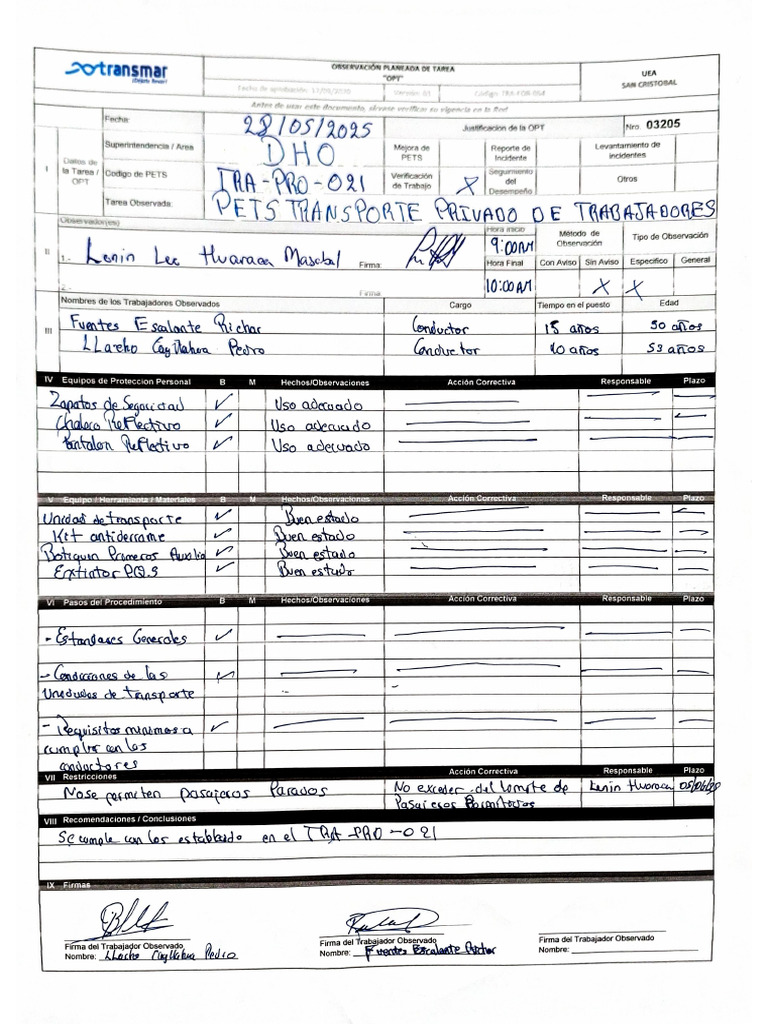 transmar
OBSERVACIÓN PLANEADA DE TAREA
"OPT"
UEA
SAN CRISTOBAL
Fecha de aprobación: Versión: 01 Código: TRA-FOR-054
Antes de usar este documento, sírvase verificar su vigencia en la Red
I
Datos de la Tarea / OPT
Fecha: 28/05/2025
Justificación de la OPT
Nro. 03205
Superintendencia / Area DHO
Mejora de PETS
Reporte de Incidente
Levantamiento de incidentes
Codigo de PETS TRA-PRO-021
Verificación de Trabajo X
Seguimiento del Desempeño
Otros
Tarea Observada: PETS TRANSPORTE PRIVADO DE TRABAJADORES
II
Observador(es)
Hora inicio
9:00AM
Método de Observación
Tipo de Observación
1.- Lenin Lee Huaraca Firma:
Hora Final
Con Aviso Sin Aviso Especifico General
2.- Firma:
10:00AM X X
III
Nombres de los Trabajadores Observados Cargo Tiempo en el puesto Edad
Fuentes Escalante Richar Conductor 15 años 50 años
LLacho Ccyllahua Pedro Conductor 10 años 53 años
IV Equipos de Proteccion Personal B M Hechos/Observaciones Acción Correctiva Responsable Plazo
Zapatos de Seguridad ✓ Uso adecuado
Chaleco Reflectivo ✓ Uso adecuado
Pantalon Reflectivo ✓ Uso adecuado
V Equipo / Herramienta / Materiales B M Hechos/Observaciones Acción Correctiva Responsable Plazo
Unidad de transporte ✓ Buen estado
Kit antiderrame ✓ Buen estado
Botiquin Primeros Auxilio ✓ Buen estado
Extintor P.Q.S ✓ Buen estado
VI Pasos del Procedimiento B M Hechos/Observaciones Acción Correctiva Responsable Plazo
- Estandares Generales ✓
- Condiciones de las ✓
Unidades de transporte
- Requisitos minimos a ✓
cumplir con los
conductores
VII Restricciones Acción Correctiva Responsable Plazo
No se permiten pasajeros Parados No exceder del limite de Lenin Huaraca
Pasajeros Permitidos
VIII Recomendaciones / Conclusiones
Se cumple con los establecido en el TRA-PRO-021
IX Firmas
Firma del Trabajador Observado
Nombre: LLacho Ccyllahua Pedro
Firma del Trabajador Observado
Nombre: Fuentes Escalante Richar
Firma del Trabajador Observado
Nombre: